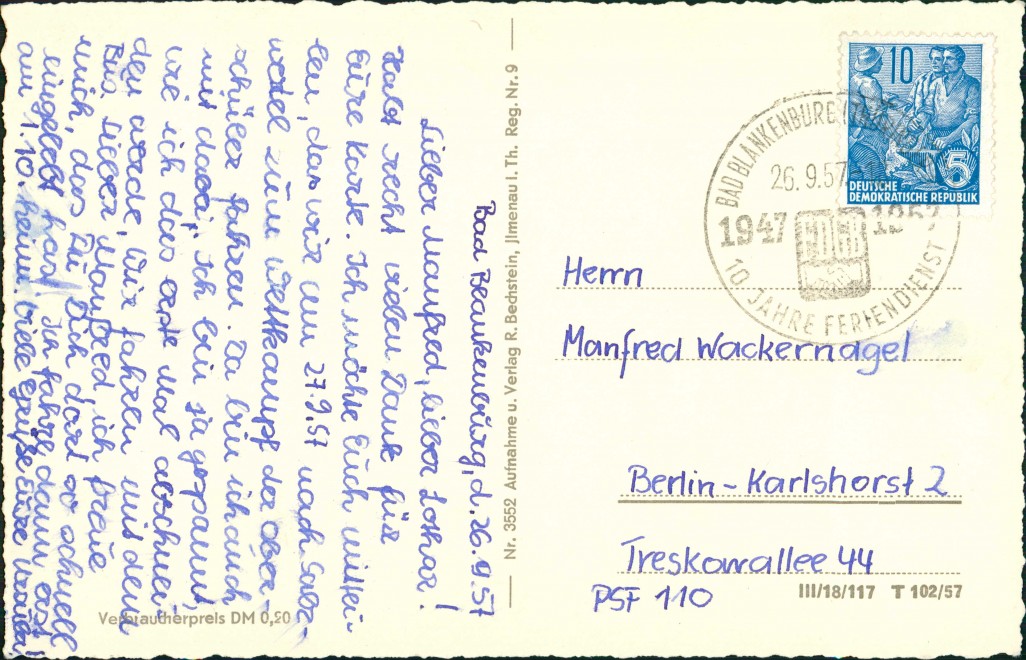 Bad Blankenburg, d. 26.9.57
Lieber Manfred, lieber Lothar!
Habt recht vielen Dank für
Eure Karte. Ich möchte Euch mittei-
len, das wir am 27.9.57 nach Salz-
wedel zum Wettkampf der Ober-
schüler fahren. Da bin ich auch
mit dabei, ich bin ja gespannt,
wie ich das erste Mal abschnei-
den werde. Wir fahren mit dem
Bus. Lieber Manfred ich freue
mich, das Du Dich dort so schnell
eingelebt hast. Ich fahre dann erst
am 1.10. heim. Viele Grüße Eure
Verbraucherpreis DM 0,20
Nr. 3552 Aufnahme u. Verlag R. Bechstein, Jlmenau i. Th. Reg. Nr. 9
10
DEUTSCHE
DEMOKRATISCHE REPUBLIK
5
BAD BLANKENBURG
26.9.57
1947 1957
10 JAHRE FERIENDIENST
Herrn
Manfred Wackernagel
Berlin-Karlshorst 2
Treskowallee 44
PSF 110
III/18/117 T 102/57